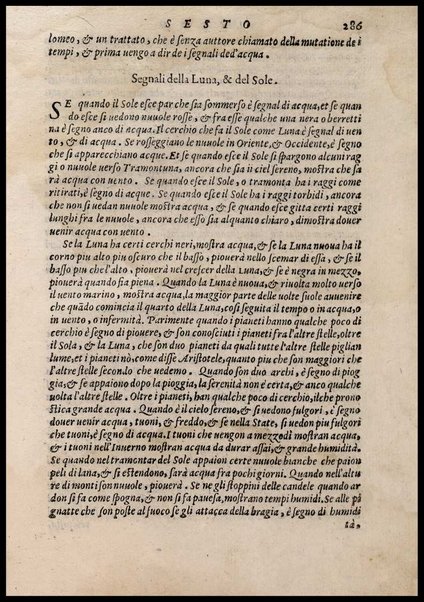 SESTO 286
lomeo, & un trattato, che è senza auttore chiamato della mutatione de i
tempi, & prima uengo a dir de i segnali ded'acqua.
Segnali della Luna, & del Sole.
SE quando il Sole esce par che sia sommerso è segnal di acqua, et se quan
do esce si uedono nuuole rosse, & fra esse qualche una nera o berretti
na è segno anco di acqua. Il cerchio che fa il Sole come Luna è segnal di uen
to, & di acqua. Se rosseggiano le nuuole in Oriente, & Occidente, è segno
che si apparecchiano acque. Et se quando esce il Sole si spargono alcuni rag
gi o nuuole uerso Tramontuna, ancora che sia il ciel sereno, mostra che sa
rà acqua con uento. Se quando esce il Sole, o tramonta ha i raggi come
ritirati, è segno di acque. Se quando esce il Sole ha i raggi torbidi, ancora
che non si uedan nuuole mostra acqua, & se quando esce gitta certi raggi
lunghi fra le nuuole, ancora che esso sia alquanto chiaro, dimostra douer
uenir acqua con uento.
Se la Luna ha certi cerchi neri, mostra acqua, & se la Luna nuoua ha il
corno piu alto piu oscuro che il basso, piouerà nello scemar di essa, & se il
basso piu che l'alto, piouerà nel crescer della Luna, & se è negra in mezzo,
piouerà quando sia piena. Quando la Luna è nuoua, & riuolta molto uerso
il uento marino, mostra acqua, la maggior parte delle uolte suole auuenire
che quãdo comincia il quarto della Luna, così seguita il tempo o in acqua, o
in uento, o in fermità. Parimente quando i pianeti hanno qualche poco di
cerchio è segno di piouere, & son conosciuti i pianeti fra l'altre stelle, oltre
il Sola, & la Luna, che son due pianeti da quali tutte l'altre stelle piglian
lume, et i pianeti nò, come disse Aristotele, quanto piu che son maggiori che
l'altre stelle secondo che uedemo. Quando son due archi, è segno di piog
gia, & se appaiono dopo la pioggia, la serenità non è certa, & anco qualche
uolta l'altre stelle. Oltre i pianeti, han qualche poco di cerchio, il che prono
stica grande acqua. Quando è il cielo sereno, & si uedono fulgori, è segno
douer uenir acqua, tuoni, & freddo, & se nella State, si uedon piu fulgori
che tuoni, è segno di acqua. I tuoni che uengon a mezzodì mostran acqua,
& i tuoni nell'Inuerno mostran acqua da durar assai, & grande humidità.
Se quando nel tramontar del Sole appaion certe nuuole bianche che paion
peli di lana, & si estendono, sarà acqua fra pochi giorni. Quando nell'altu
re di monti son nuuole, piouerà. Se ne gli stoppini delle candele quando ar
don si fa come spogna, & non si fa pauesa, mostrano tempi humidi. Se alle pi
gnatte che son poste al fuoco se gli attacca della bragia, è segno di humidi
tà,